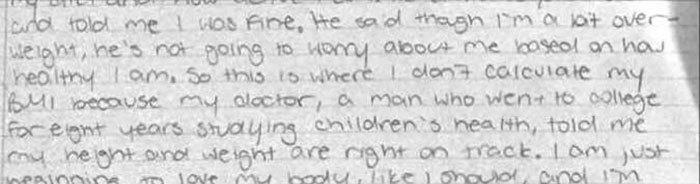 and told me I was fine. He said though I'm a bit over-
weight, he's not going to worry about me based on how
healthy I am. So this is where I don't calculate my
BMI because my doctor, a man who went to college
for eight years studying children's health, told me
my height and weight are right on track. I am just
beginning to love my body, like I should, and I'm